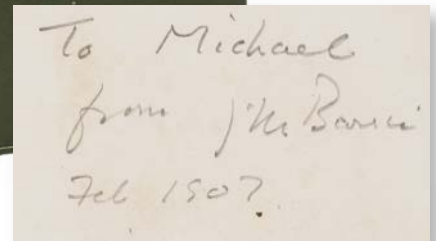 To Michael
from J M Barrie
Feb 1907.